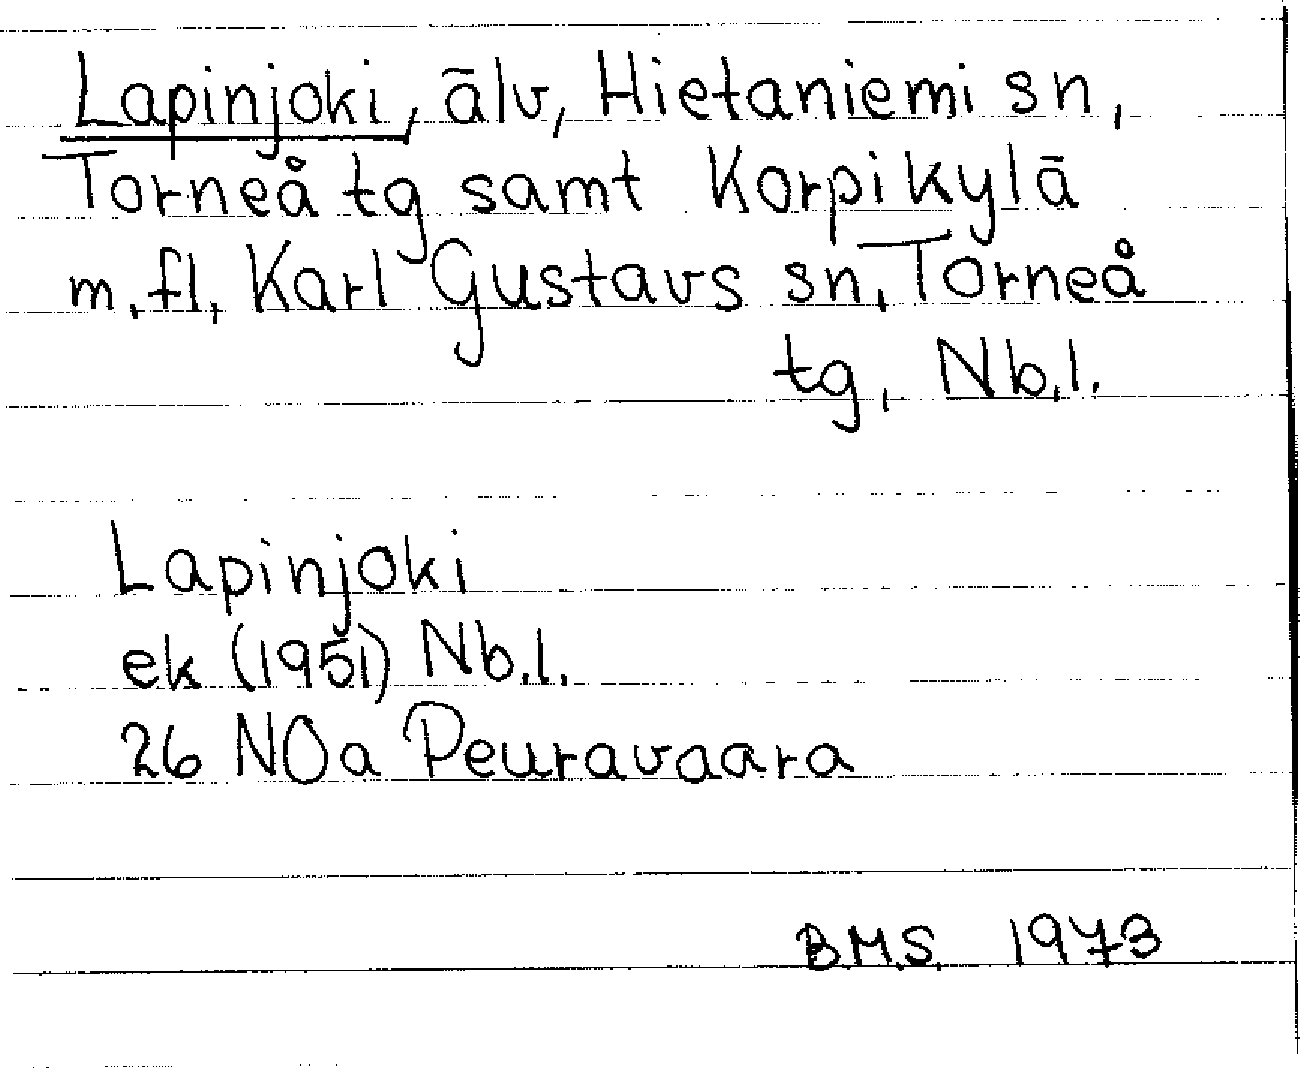 Lapinjoki, älv, Hietaniemi sn,
Torneå tg samt Korpikylä
m.fl. Karl Gustavs sn, Torneå
tg, Nb.l.
Lapinjoki
ek (1951) Nb.l.
26 NOa Peuravaara
B.M.S. 1973